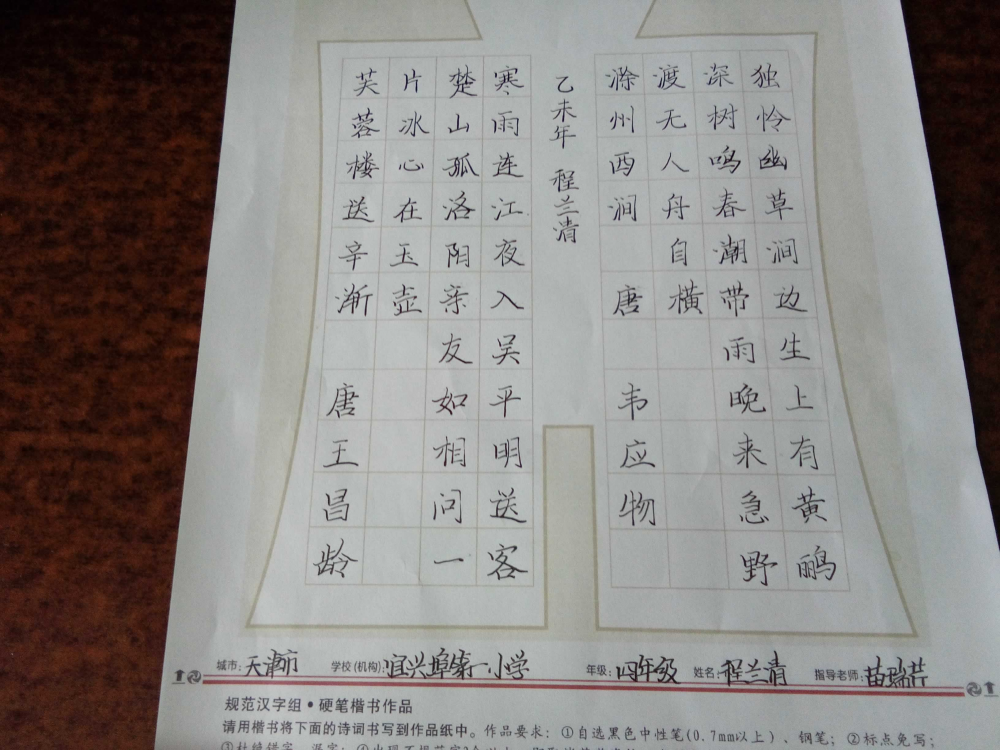 独怜幽草涧边生上有黄鹂
深树鸣春潮带雨晚来急野
渡无人舟自横
滁州西涧 唐 韦应物
乙未年 程兰清
寒雨连江夜入吴平明送客
楚山孤洛阳亲友如相问一
片冰心在玉壶
芙蓉楼送辛渐 唐王昌龄
城市：天津市 学校(机构)：宜兴埠第一小学 年级：四年级 姓名：程兰清 指导老师：苗瑞芹
规范汉字组·硬笔楷书作品
请用楷书将下面的诗词书写到作品纸中。作品要求：①自选黑色中性笔(0.7mm以上)、钢笔；②标点免写；